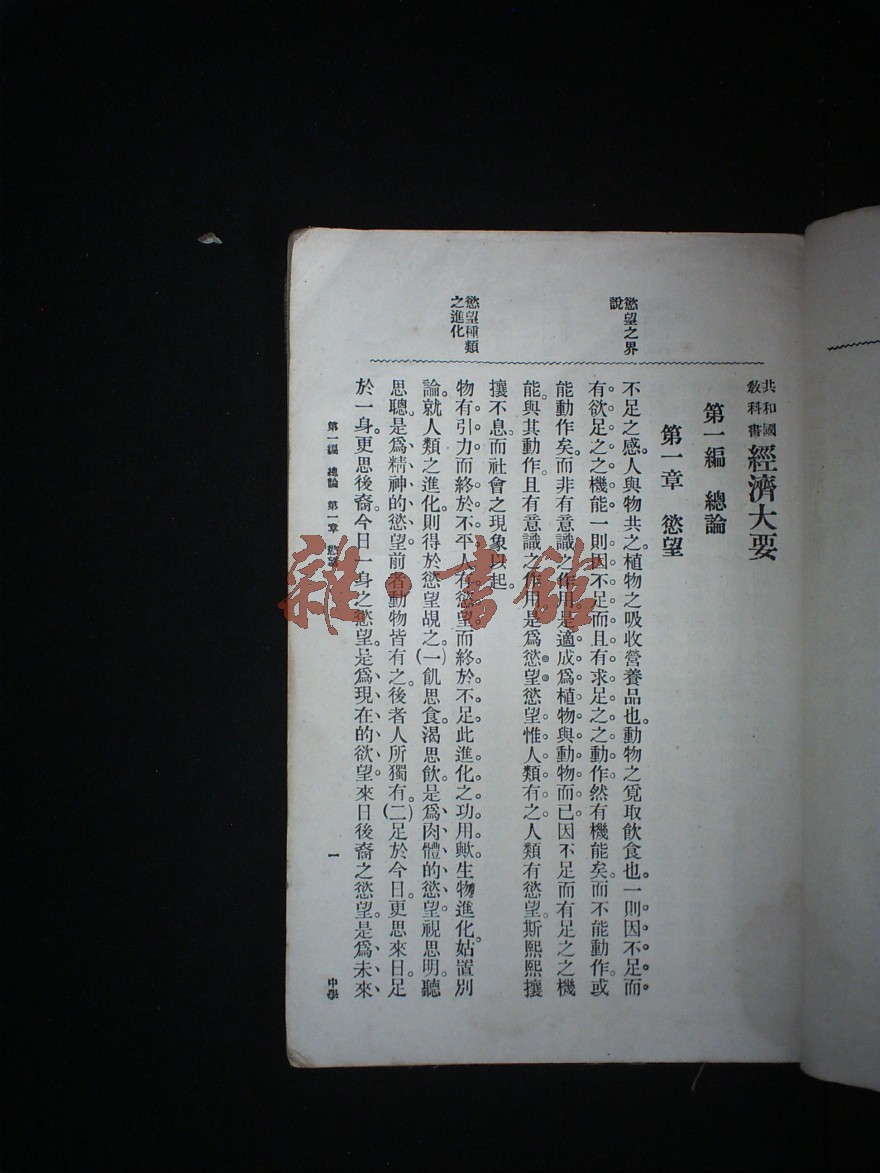 共和國
教科書
經濟大要
第一編　總論
第一章　慾望
慾望之界
說
不足之感。人與物共之。植物之吸收營養品也。動物之覓取飲食也。一則因不足而
有欲足之之機能一則因不足而且有求足之之動作然有機能矣。而不能動作。或
能動作矣。而非有意識之作用。是適成爲植物與動物而已因不足而有足之之機
能。與其動作。且有意識之作用。是爲慾望慾望惟人類有之。人類有慾望。斯熙熙攘
攘不息。而社會之現象以起。
慾望種類
之進化
物有引力而終於不平人有慾望而終於不足此進化之功用歟。生物進化。姑置別
論。就人類之進化。則得於慾望覘之。(一)飢思食。渴思飲。是爲肉體的慾望。視思明。聽
思聰。是爲精神的慾望前者動物皆有之。後者人所獨有。(二)足於今日。更思來日。足
於一身。更思後裔。今日一身之慾望。是爲現在的欲望。來日後裔之慾望。是爲未來
第一編　總論　第一章　慾望
一
中學
雜·書館